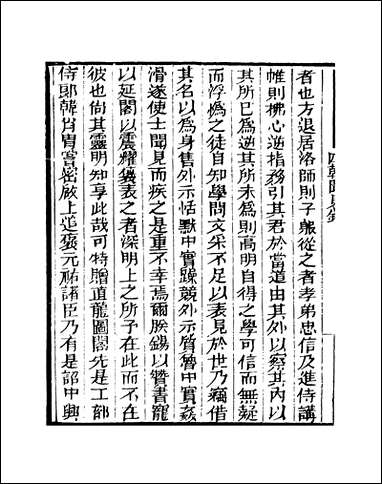 四朝聞見錄
者也方退居洛師則子躰從之者孝弟忠信及進侍講
帷則拂心逆指務引其君於當道由其外以察其內以
其所已爲逆其所未爲則高明自得之學可信而無疑
而浮僞之徒自知學問文采不足以表見於世乃竊借
其名以爲身售外示恬默中實躁競外示質魯中實姦
滑遂使士聞見而疾之是重不幸焉爾朕錫以贊書寵
以延閣以震耀褒表之者深明上之所予在此而不在
彼也尚其靈明知享此哉可特贈直龍圖閣先是工部
侍郞韓肖胄嘗密啟上追褒元祐諸臣乃有是詔中興